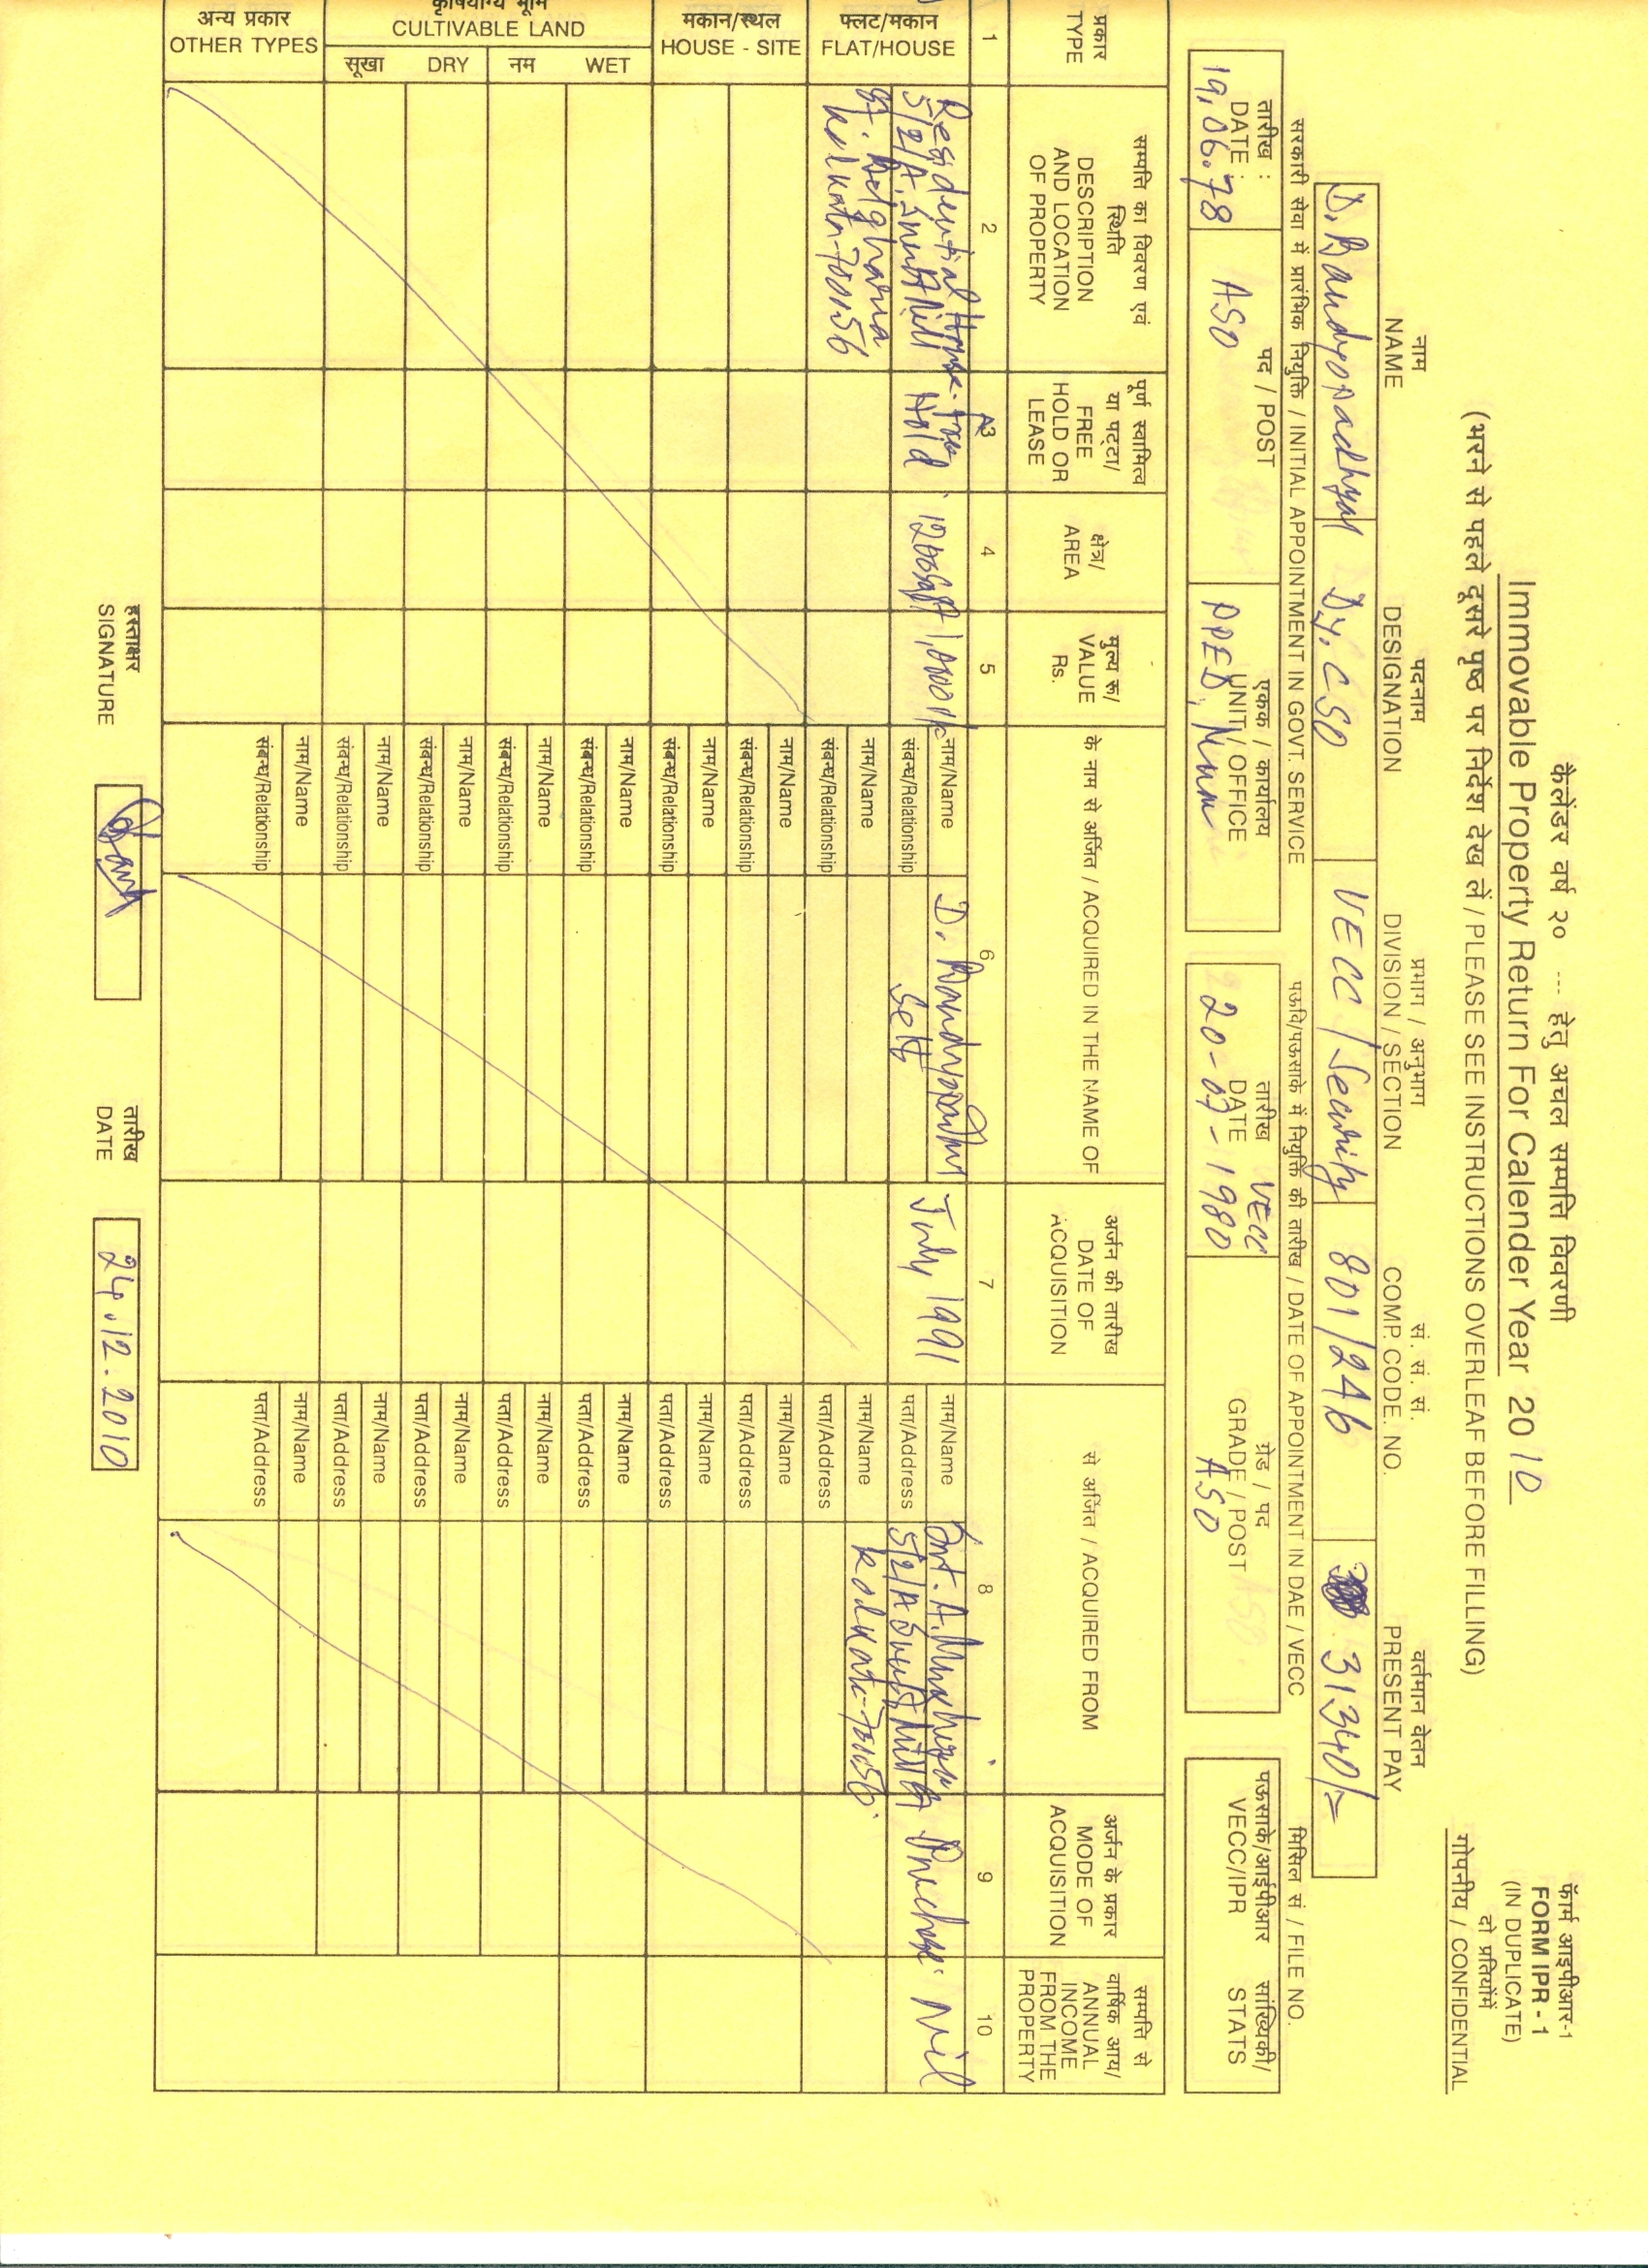 फॉर्म आइपीआर-1
FORM IPR - 1
(IN DUPLICATE)
दो प्रतियोंमें
गोपनीय / CONFIDENTIAL
कैलेंडर वर्ष २० --- हेतु अचल सम्पत्ति विवरणी
Immovable Property Return For Calender Year 20 10
(भरने से पहले दूसरे पृष्ठ पर निर्देश देख लें / PLEASE SEE INSTRUCTIONS OVERLEAF BEFORE FILLING)
नाम पदनाम प्रभाग / अनुभाग सं. सं. सं. वर्तमान वेतन
NAME DESIGNATION DIVISION / SECTION COMP. CODE. NO. PRESENT PAY
D. Bandyopadhyay Dy. CSO VECC / Security 801/246 31340/=
सरकारी सेवा में प्रारंभिक नियुक्ति / INITIAL APPOINTMENT IN GOVT. SERVICE
पऊवि/पऊसाके में नियुक्ति की तारीख / DATE OF APPOINTMENT IN DAE / VECC
मिसिल सं / FILE NO.
तारीख : पद / POST एकक / कार्यालय
DATE : UNIT / OFFICE
19.06.78 ASO PPED,
तारीख VECC ग्रेड / पद
DATE GRADE / POST
20-07-1980 ASO
पऊसाके/आईपीआर सांख्यिकी/
VECC/IPR STATS
प्रकार
TYPE
सम्पत्ति का विवरण एवं
स्थिति
DESCRIPTION
AND LOCATION
OF PROPERTY
पूर्ण स्वामित्व
या पटटा/
FREE
HOLD OR
LEASE
क्षेत्र/
AREA
मुल्य रू/
VALUE
Rs.
के नाम से अर्जित / ACQUIRED IN THE NAME OF
अर्जन की तारीख
DATE OF
ACQUISITION
से अर्जित / ACQUIRED FROM
अर्जन के प्रकार
MODE OF
ACQUISITION
सम्पत्ति से
वार्षिक आय/
ANNUAL
INCOME
FROM THE
PROPERTY
1 2 3 4 5 6 7 8 9 10
फ्लट/मकान
FLAT/HOUSE
Residential House.
5/2/A.
Belgharia
Kolkata-700056
Free
Hold
1200sqft
नाम/Name D. Bandyopadhyay
संबन्ध/Relationship Self
July 1991
नाम/Name Smt. A. Mukherjee
पता/Address 5/2/A
Kolkata-700056.
Purchase. Nil
नाम/Name नाम/Name
संबन्ध/Relationship पता/Address
मकान/स्थल
HOUSE - SITE
नाम/Name नाम/Name
संबन्ध/Relationship पता/Address
नाम/Name नाम/Name
संबन्ध/Relationship पता/Address
कृषियोग्य भूमि
CULTIVABLE LAND
नम WET
नाम/Name नाम/Name
संबन्ध/Relationship पता/Address
नाम/Name नाम/Name
संबन्ध/Relationship पता/Address
सूखा DRY
नाम/Name नाम/Name
संबन्ध/Relationship पता/Address
नाम/Name नाम/Name
संबन्ध/Relationship पता/Address
अन्य प्रकार
OTHER TYPES
नाम/Name नाम/Name
संबन्ध/Relationship पता/Address
हस्ताक्षर तारीख
SIGNATURE DATE 24.12.2010